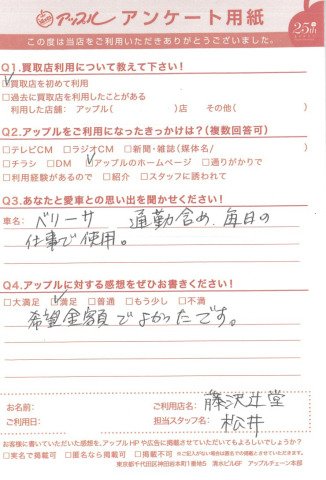 アップル アンケート用紙 25th
この度は当店をご利用いただきありがとうございました。
Q1.買取店利用について教えて下さい！
☑買取店を初めて利用
□過去に買取店を利用したことがある
利用した店舗： アップル（ ）店 その他（ ）
Q2.アップルをご利用になったきっかけは？（複数回答可）
□テレビCM □ラジオCM □新聞・雑誌（媒体名／ ）
□チラシ □DM ☑アップルのホームページ □通りがかりで
□利用経験があるので □紹介 □スタッフに誘われて
Q3.あなたと愛車との思い出を聞かせください！
車名： ベリーサ 通勤含め、毎日の
仕事で使用。
Q4.アップルに対する感想をぜひお書きください！
□大満足 ☑満足 □普通 □もう少し □不満
希望金額でよかったです。
お名前： ご利用店名： 藤沢辻堂
ご利用日： 担当スタッフ名： 松井
お客様に書いていただいた感想を、アップルHPや広告に掲載させていただいてもよろしいでしょうか？
□実名で掲載可 □匿名なら掲載可 □掲載不可 ※ご記入がない場合は匿名での掲載とさせていただきます。
東京都千代田区神田岩本町1番地5 清水ビル6F アップルチェーン本部